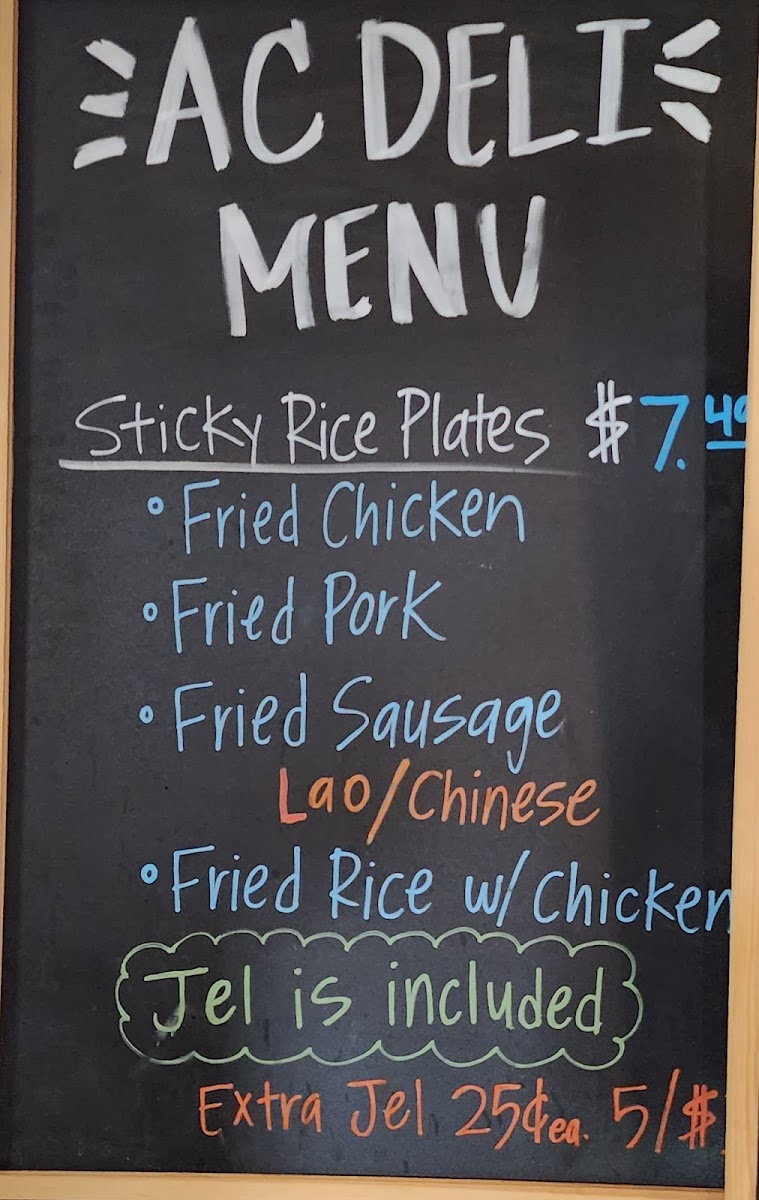 AC DELI
MENU
Sticky Rice Plates $7.49
• Fried Chicken
• Fried Pork
• Fried Sausage
Lao/Chinese
• Fried Rice w/Chicken
Jel is included
Extra Jel 25¢ ea. 5/$